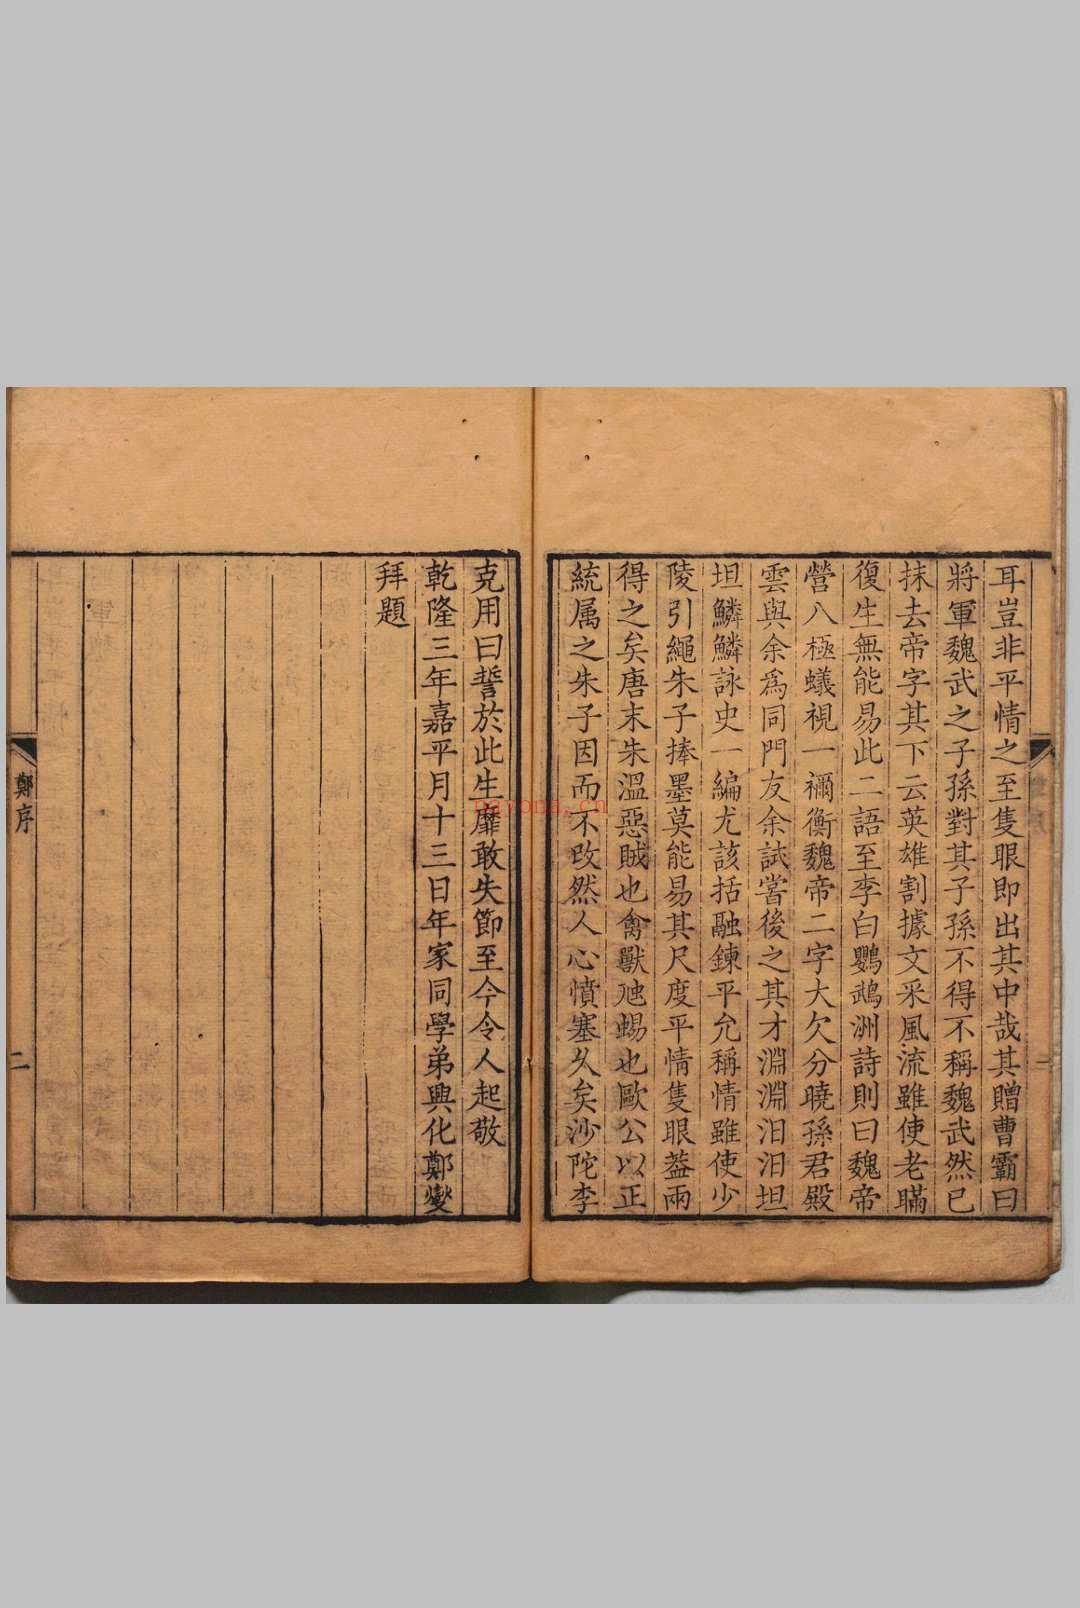 耳豈非平情之至隻眼即出其中哉其贈曹霸曰
將軍魏武之子孫對其子孫不得不稱魏武然已
抹去帝字其下云英雄割據文采風流雖使老瞞
復生無能易此二語至李白鸚鵡洲詩則曰魏帝
營八極蟻視一禰衡魏帝二字大欠分曉孫君殿
雲與余為同門友余試嘗後之其才淵淵汩汩坦
坦鱗鱗詠史一編尤該括融鍊平允稱情雖使少
陵引繩朱子捧墨莫能易其尺度平情隻眼葢兩
得之矣唐末朱溫惡賊也禽獸虺蜴也歐公以正
統属之朱子因而不改然人心憤塞久矣沙陀李
克用曰誓於此生靡敢失節至今令人起敬
乾隆三年嘉平月十三日年家同學弟興化鄭燮
拜題
鄭序
二
nayona.cn